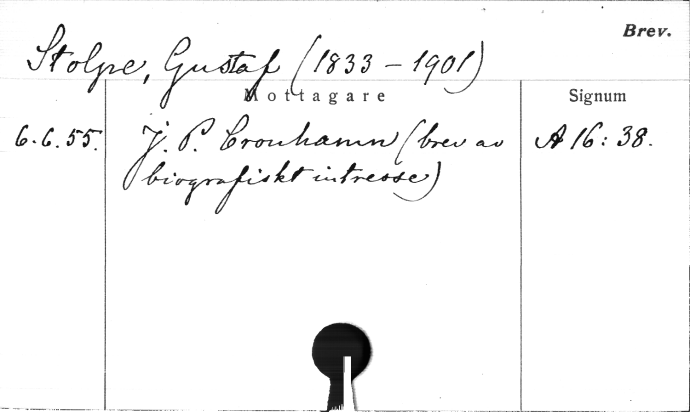 Brev.
Stolpe, Gustaf (1833 - 1901)
Mottagare Signum
6.6.55. J. P. Cronhamn (brev av A 16: 38.
biografiskt intresse)